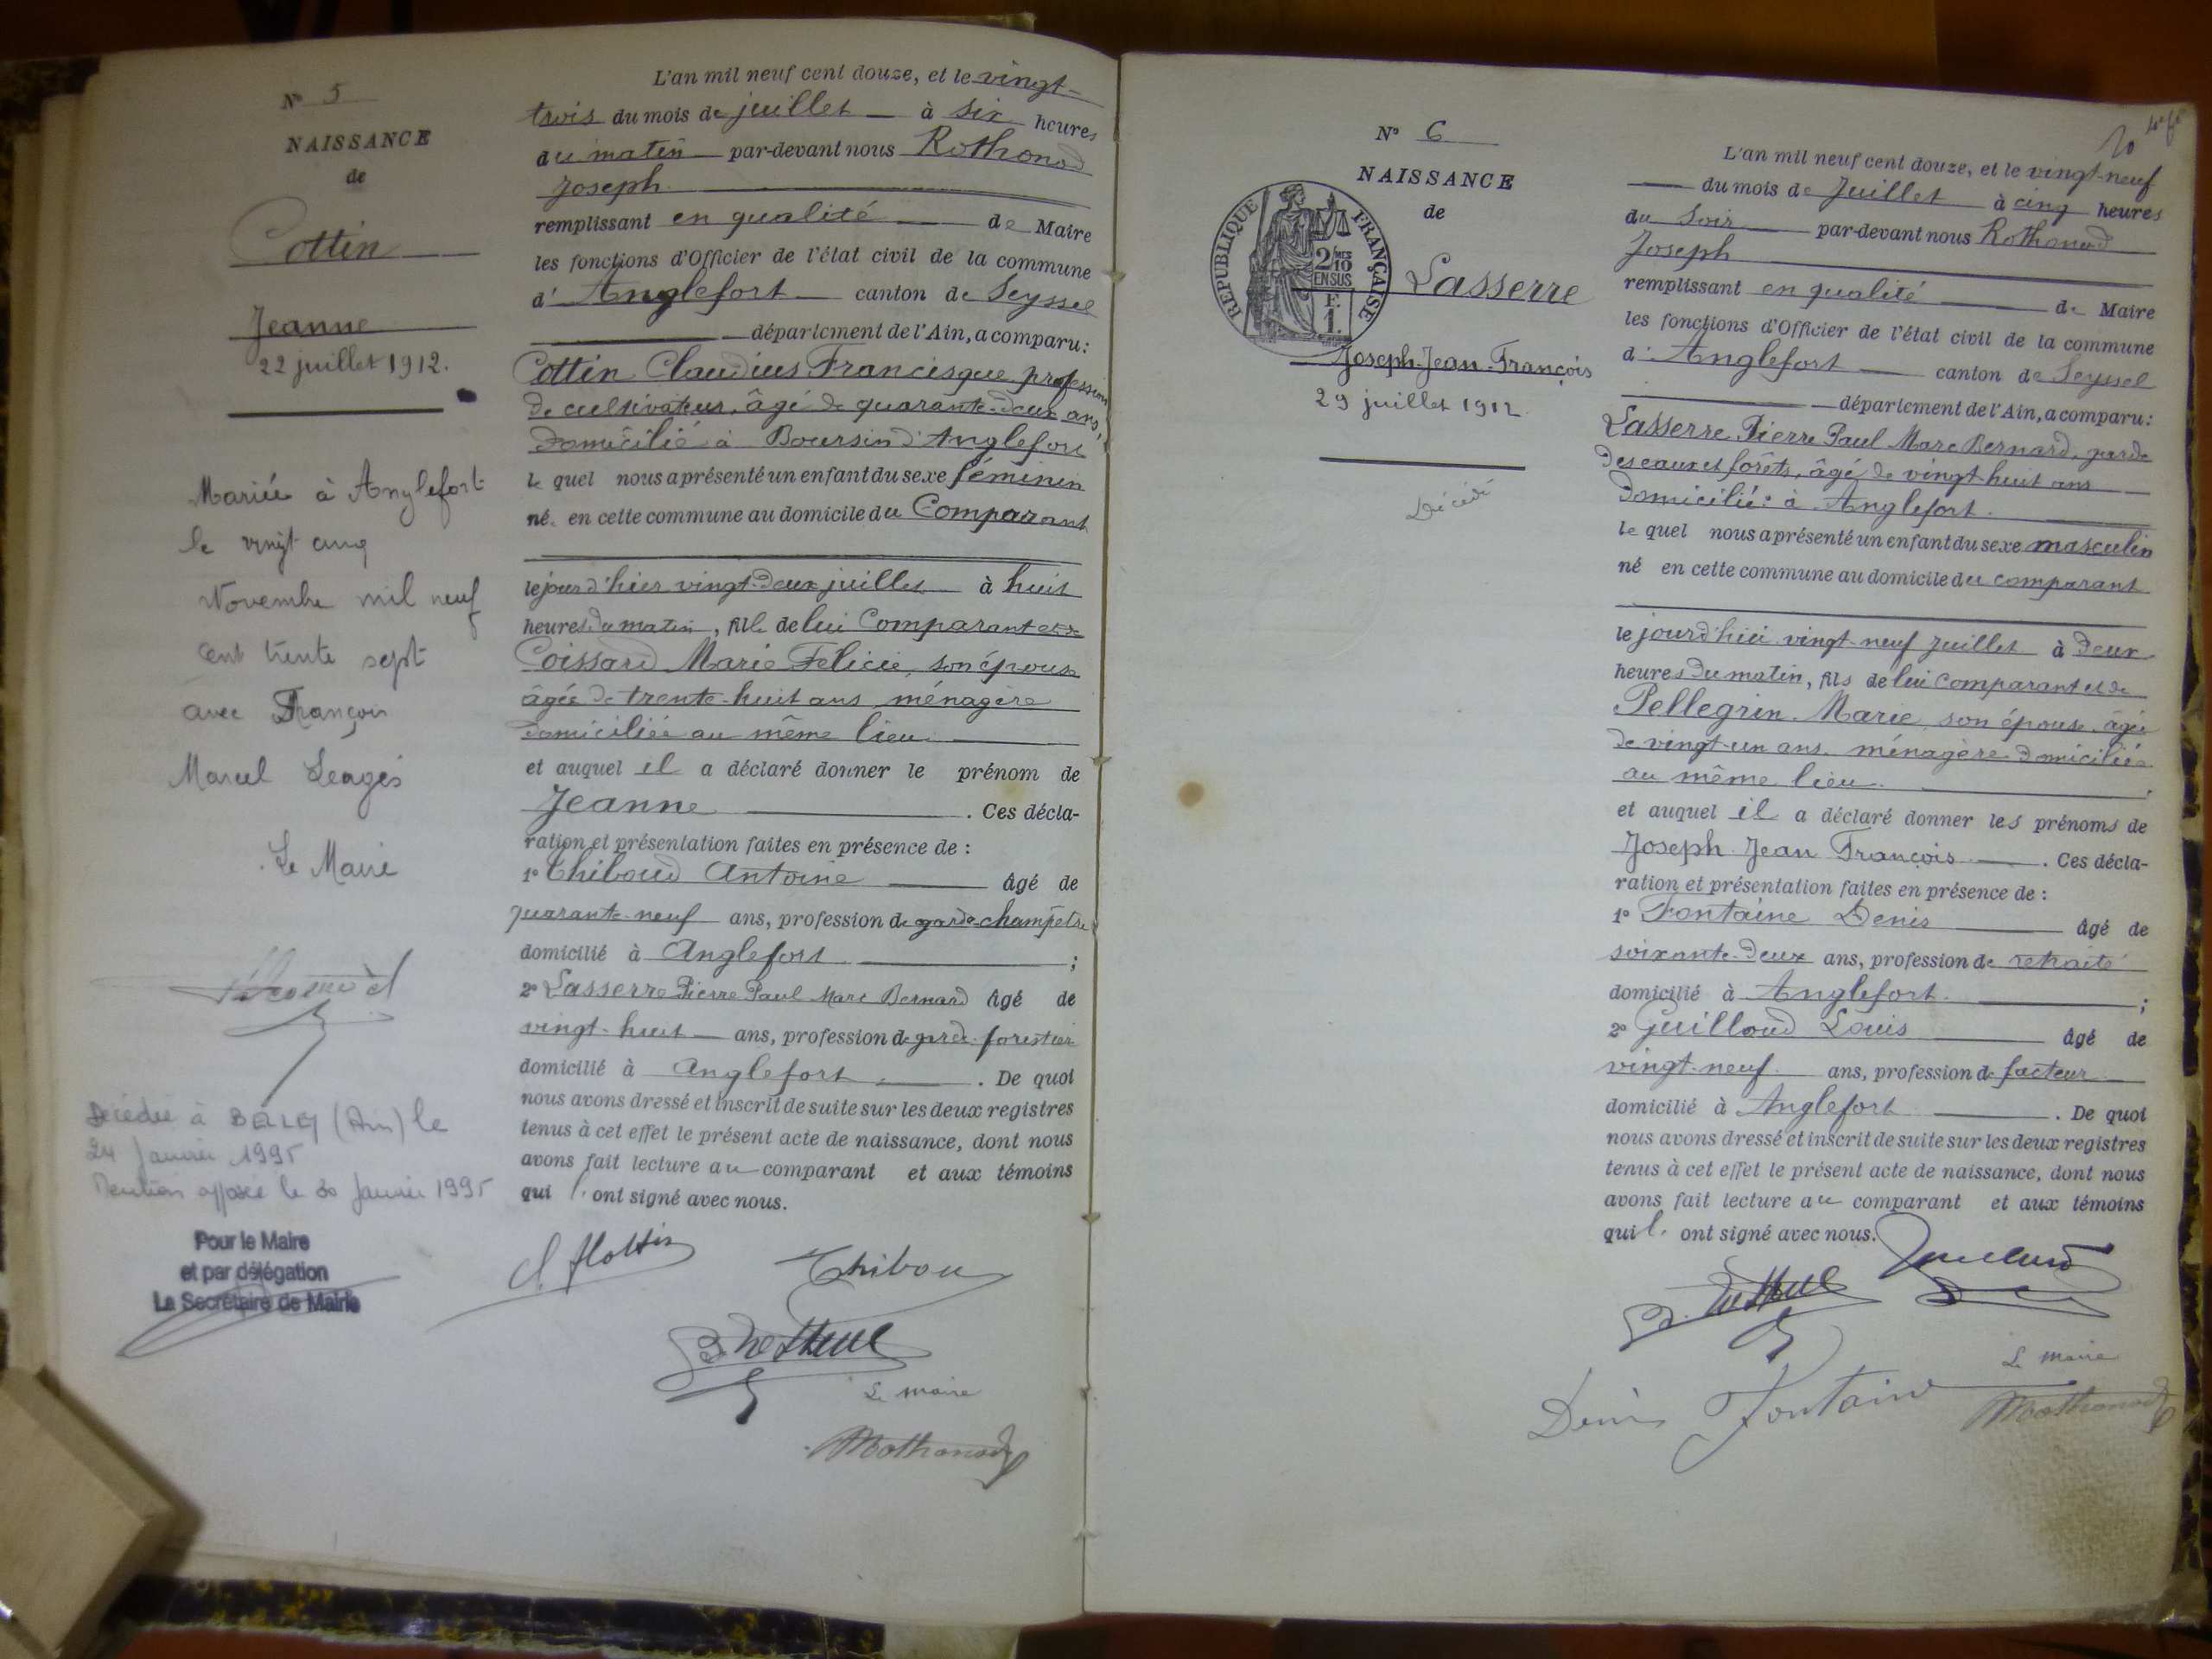 N° 5
NAISSANCE
de
Cottin
Jeanne
22 juillet 1912.
Mariée à Anglefort
le vingt cinq
Novembre mil neuf
cent trente sept
avec François
Marcel
Le Maire
Décédée à BELLEY (Ain) le
24 Janvier 1995
Mention apposée le 30 Janvier 1995
Pour le Maire
et par délégation
La Secrétaire de Mairie
L'an mil neuf cent douze, et le vingt-
trois du mois de juillet à six heures
du matin par-devant nous Rothonod
Joseph
remplissant en qualité de Maire
les fonctions d'Officier de l'état civil de la commune
d' Anglefort canton de Seyssel
département de l'Ain, a comparu:
Cottin Claudius Francisque profession
de cultivateur, âgé de quarante-deux ans,
domicilié à Boursin d'Anglefort
le quel nous a présenté un enfant du sexe féminin
né en cette commune au domicile du Comparant
le jour d'hier vingt-deux juillet à huit
heures du matin, fille de lui Comparant et de
Coissard Marie Félicie, son épouse
âgée de trente-huit ans ménagère
domiciliée au même lieu
et auquel il a déclaré donner le prénom de
Jeanne . Ces décla-
ration et présentation faites en présence de :
1° Thiboud Antoine âgé de
quarante-neuf ans, profession de garde-champêtre
domicilié à Anglefort ;
2° Lasserre Pierre Paul Marc Bernard âgé de
vingt-huit ans, profession de garde forestier
domicilié à Anglefort . De quoi
nous avons dressé et inscrit de suite sur les deux registres
tenus à cet effet le présent acte de naissance, dont nous
avons fait lecture au comparant et aux témoins
qui l' ont signé avec nous.
Thibou
Le maire
Rothonod
N° 6
NAISSANCE
de
RÉPUBLIQUE FRANÇAISE
2/10 MES
EN SUS
F.
1.
Lasserre
Joseph-Jean-François
29 juillet 1912
Décédé
10
L'an mil neuf cent douze, et le vingt-neuf
du mois de Juillet à cinq heures
du Soir par-devant nous Rothonod
Joseph
remplissant en qualité de Maire
les fonctions d'Officier de l'état civil de la commune
d' Anglefort canton de Seyssel
département de l'Ain, a comparu:
Lasserre Pierre Paul Marc Bernard, garde
des eaux et forêts, âgé de vingt-huit ans
domicilié à Anglefort.
le quel nous a présenté un enfant du sexe masculin
né en cette commune au domicile du comparant
le jourd'hui vingt-neuf juillet à deux
heures du matin, fils de lui comparant et de
Pellegrin Marie, son épouse, âgée
de vingt-un ans, ménagère domiciliée
au même lieu.
et auquel il a déclaré donner les prénoms de
Joseph Jean François . Ces décla-
ration et présentation faites en présence de :
1° Fontaine Denis âgé de
soixante-deux ans, profession de retraité
domicilié à Anglefort. ;
2° Guilloud Louis âgé de
vingt-neuf ans, profession de facteur
domicilié à Anglefort . De quoi
nous avons dressé et inscrit de suite sur les deux registres
tenus à cet effet le présent acte de naissance, dont nous
avons fait lecture au comparant et aux témoins
qui l' ont signé avec nous.
Le maire
Denis Fontaine
Rothonod